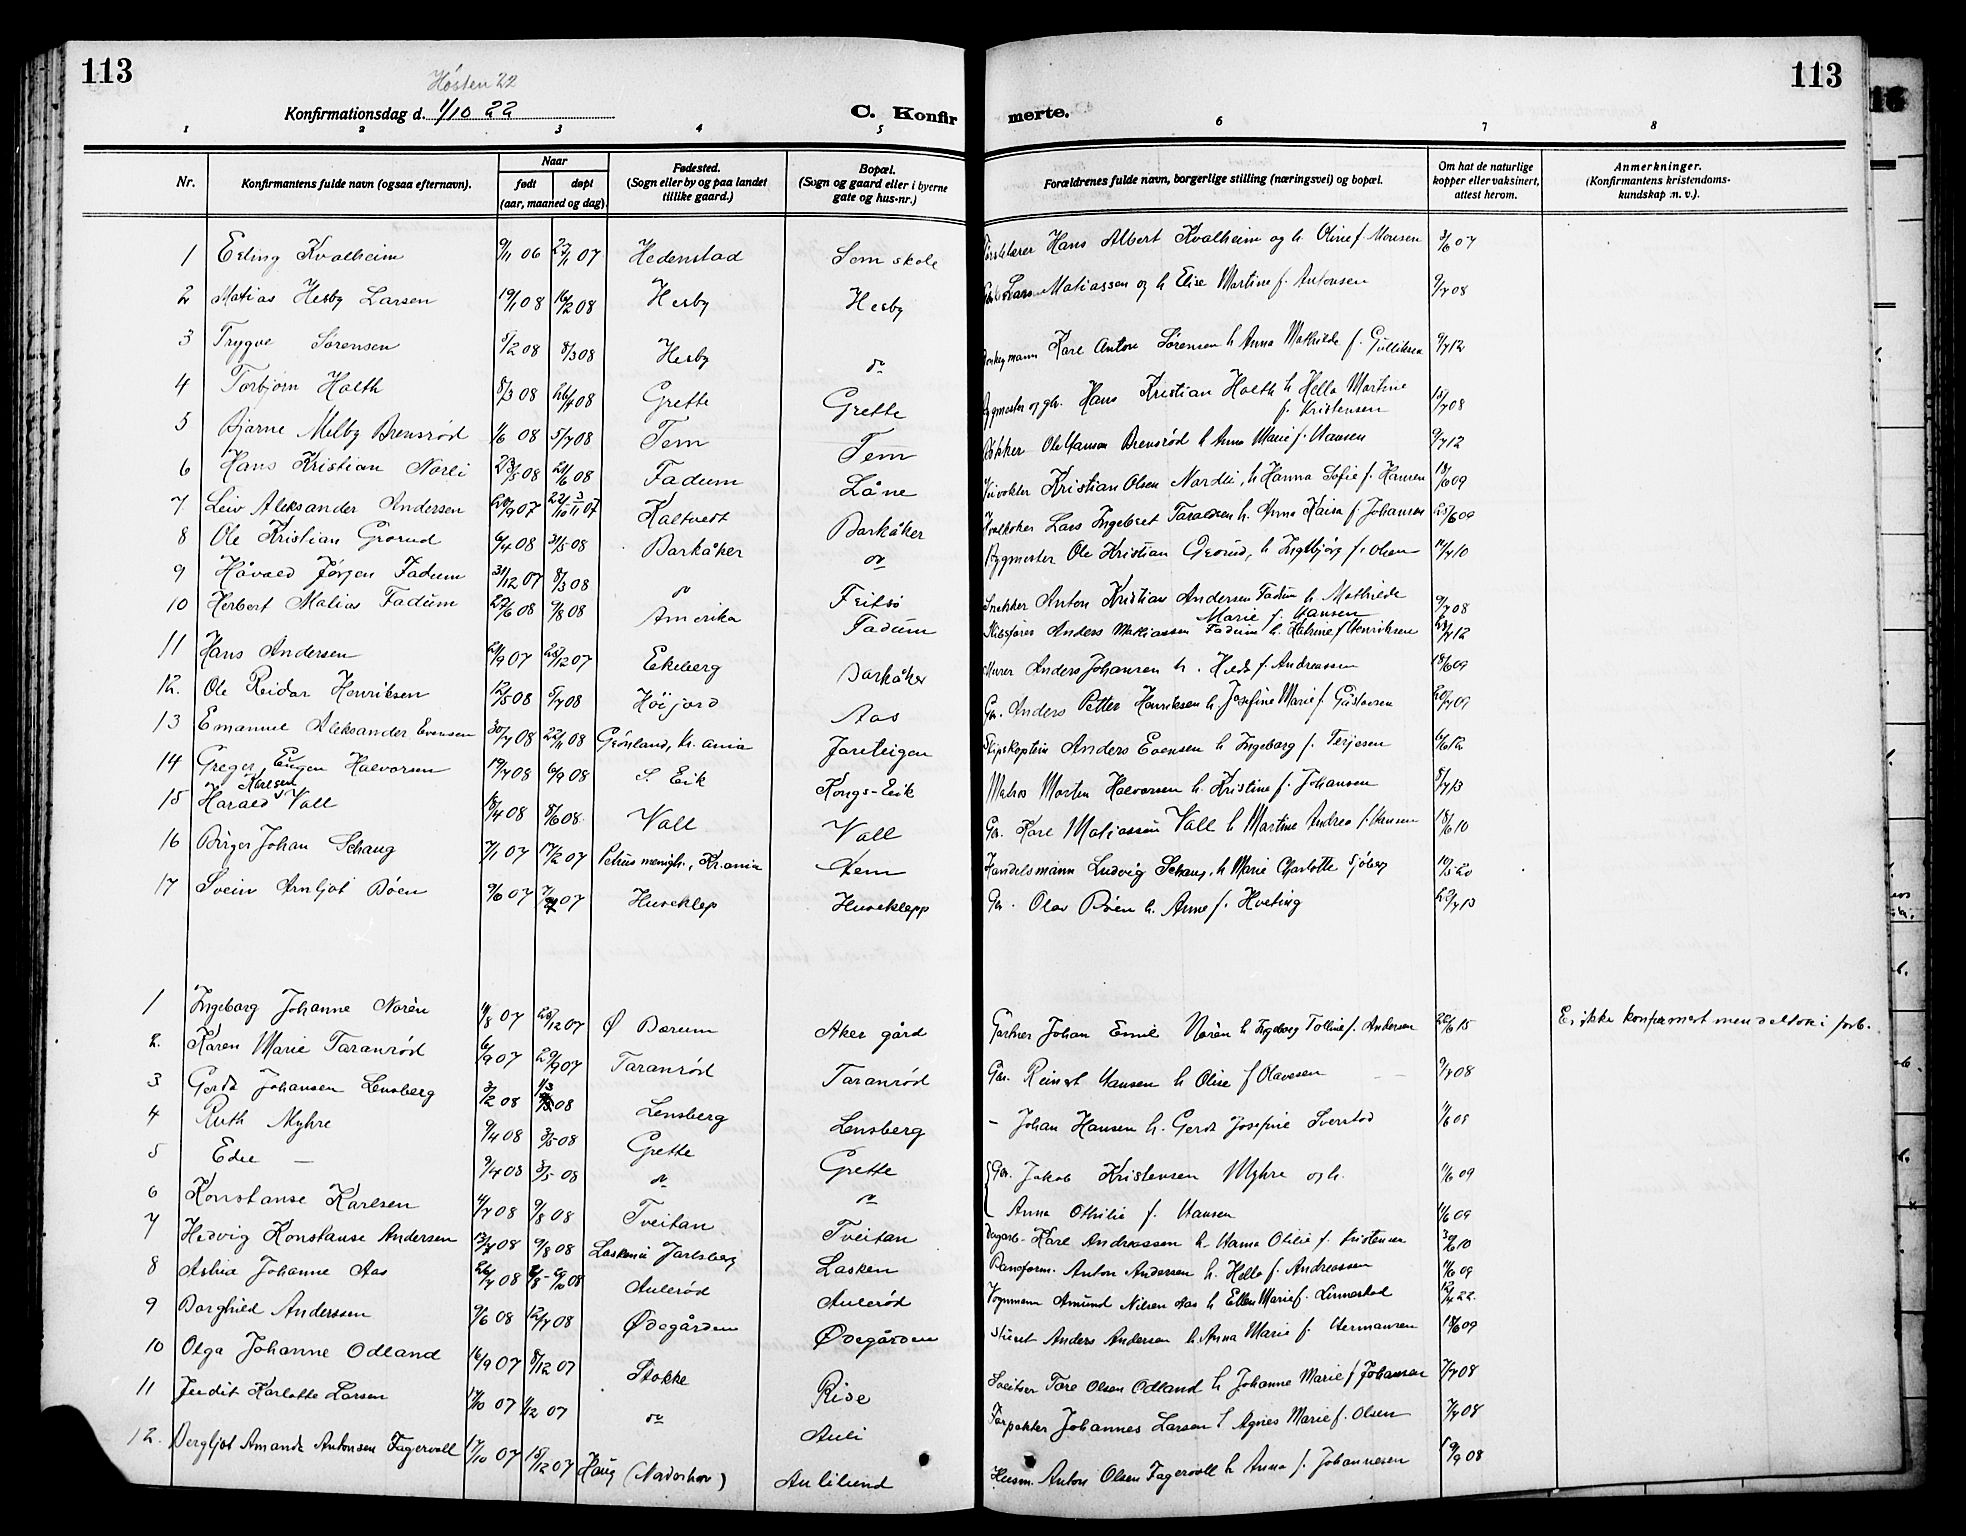 113
Høsten 22
Konfirmationsdag d. 1/10 22
C. Konfir
merte.
113
1 2 3 4 5 6 7 8
Nr.
Konfirmantens fulde navn (ogsaa efternavn).
Naar
født døpt
(aar, maaned og dag)
Fødested.
(Sogn eller by og paa landet
tillike gaard.)
Bopæl.
(Sogn og gaard eller i byerne
gate og hus-nr.)
Forældrenes fulde navn, borgerlige stilling (næringsvei) og bopæl.
Om hat de naturlige
kopper eller vaksinert,
attest herom.
Anmerkninger.
(Konfirmantens kristendoms-
kundskap m. v.).
1 Erling Kvalheim 9/11 06 27/1 07 Hedenstad Sem skole Hans Albert Kvalheim og h. Oline f. Monsen 3/6 07
2 Matias Hesby Larsen 19/1 08 16/2 08 Hesby Hesby Lars Matiassen og h Elise Martine f. Antonsen 9/7 08
3 Trygve Sørensen 5/2 08 8/3 08 Hesby do Karl Anton Sørensen h Anna Mathilde f. Gulliksen 9/7 12
4 Torbjørn Holth 8/3 08 26/4 08 Grette Grette Bygmester og gbr. Hans Kristian Holth h Hella Martine
f. Kristensen 15/7 08
5 Bjarne Melby Brensrød 1/6 08 5/7 08 Tem Tem Ole Hansen Brensrød h Anna Marie f. Hansen 9/7 12
6 Hans Kristian Norli 23/5 08 21/6 08 Fadum Låne Kristian Olsen Nordli, h Hanna Sofie f. Hansen 18/6 09
7 Leiv Aleksander Andersen 20/9 07 Kaltvedt Barkåker Lars Ingebret Taraldsen h. Anna Kaisa f. Johansen 25/6 09
8 Ole Kristian Grorud 6/4 08 31/5 08 Barkåker do Bygmester Ole Kristian Grorud, h Ingebjørg f. Olsen 11/7 10
9 Håvald Jørgen Fadum 31/12 07 8/3 08 do Feitsö Snekker Anton Kristian Andersen Fadum h Mathilde
Marie f. Hansen 9/7 08
10 Herbert Matias Fadum 27/6 08 9/8 08 Amerika Fadum Skibsfører Anders Matiassen Fadum h. Katrine f Henriksen
11 Hans Andersen 21/9 07 25/12 07 Ekeberg Barkåker Murer Anders Johansen h. Hilda f. Andreassen 18/6 09
12. Ole Reidar Henriksen 12/5 08 5/7 08 Höijord Aas Gbr. Anders Petter Henriksen h Josefine Marie f. Gustavsen 20/7 09
13 Emanuel Aleksander Evensen 30/7 08 22/11 08 Grønland, Kr.ania Jareteigen Skipskaptein Anders Evensen h Ingeborg f. Terjesen
14 Greger Eugen Halvorsen 19/7 08 6/9 08 S. Eik Kongs-Eik Matros Morten Halvorsen h. Kristine f. Johansen 8/7 13
15 Harald Karlsen Vall 18/4 08 8/6 08 Vall Vall Gbr. Karl Matiassen Vall h Martine Andrea f. Hansen 18/6 10
16 Birger Johan Schaug 7/1 07 17/2 07 Petrus menigh., Kr.ania Sem Handelsmann Ludvig Schaug, h Marie Charlotte Sjøberg 10/5 20
17 Svein Arnljot Bøen 9/6 07 Huseklep Huseklepp Gbr. Olav Bøen h. Anne f. Hveting 23/7 13
1 Ingeborg Johanne Norén 11/8 07 26/12 07 Ø Bærum Aker gård Gartner Johan Emil Norén h Ingeborg Tolline f. Andersen 22/6 15 Er ikke konfirmert men deltok i forb.
2. Karen Marie Taranrød 6/9 07 29/9 07 Taranrød Taranrød Gbr. Reinert Hansen h Olise f Olavesen 9/7 08
3 Gerda Johansen Lensberg 3/2 08 Lensberg Lensberg – Johan Hansen h. Gerda Josefine Sverstad
4 Ruth Myhre 9/4 08 3/5 08 Grette Grette Gbr. Jakob Kristensen Myhre og h. 11/6 09
5 Edel — 9/4 08 3/5 08 do do Anna Othilie f. Hansen 11/6 09
6 Konstanse Karlsen 4/7 08 9/8 08 Tveitan Tveitan Dagarb. Karl Andreassen h. Hanna Otilie f. Kristensen
7 Hedvig Konstanse Andersen 13/7 08 9/8 08 Jarlsberg Lasken Anton Andersen h. Hella f. Andreassen 11/6 09
8 Johanne Aas 26/7 08 Aulerød Aulerød Vognmann Amund Nilsen Aas h Ellen Marie f. Linnestad 12/4 22.
9 Borghild Anderssen 9/6 08 12/7 08 Ødegården Ødegården Anders Andersen h. Anna Marie f. Hermansen 18/6 09
10 Olga Johanne Odland 16/9 07 8/12 07 Stokke Rise Sveitser Tore Olsen Odland h Johanne Marie f Johansen 7/7 08
11 Judit Karlotte Larsen 17/10 07 1/12 07 do Auli Forpakter Johannes Larsen h Agnes Marie f. Olsen 7/7 08
12. Bergljot Amanda Antonsen Fagervoll 17/10 07 15/12 07 Haug (Naderhov) Aulilund Husm. Anton Olsen Fagervoll h Anna f. Johannesen 19/9 08